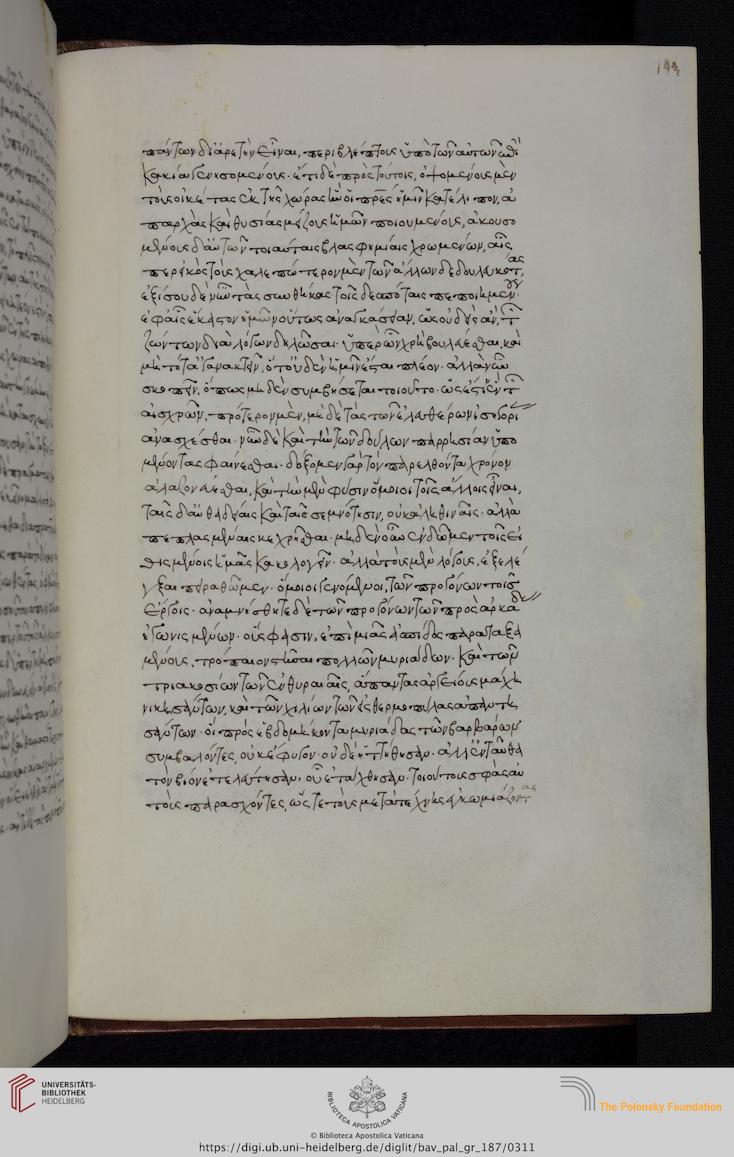 143
πάντων δι' ἀρετὴν εἶναι, περιβλέπτους ὑπὸ τῶν αὐτῶν ἐπὶ
κακίᾳ γενησομένους· ἔτι δὲ πρὸς τούτοις, ὀψομένους μὲν
τοὺς οἰκέτας ἐκ τῆς χώρας ἣν οἱ πρες ἡμῖν κατέλιπον, ἀ
παρχὰς καὶ θυσίας μείζους ἡμῶν ποιουμένους, ἀκουσο
μένους δ' αὐτῶν τοιαύταις βλασφημίαις χρωμένων, αἷς
περ εἰκὸς τοὺς χαλεπώτερον μὲν τῶν ἄλλων δεδουλευκότας
ἐξίσου δὲ νῦν τὰς συνθήκας τοῖς δεσπόταις πεποιημένους·
ἐφ' αἷς ἕκαστον ἡμῶν οὕτως ἀναγκάσειαν, ὡς οὐδεὶς ἂν τ
ζώντων διὰ λόγων δηλῶσαι· ὑπὲρ ὧν χρὴ βουλεύεσθαι, καὶ
μὴ τότ' ἀγανακτεῖν, ὅτ' οὐδὲν ἡμῖν ἔσται πλέον· ἀλλὰ νῦν
σκοπεῖν, ὅπως μηδὲν συμβήσεται τοιοῦτο· ὡς ἔστιν ἓν τ
αἰσχρῶν, πρότερον μὲν, μηδὲ τὰς τῶν ἐλευθέρων ἰσηγορί
ἀνασχέσθαι· νῦν δὲ καὶ τὴν τῶν δούλων παρρησίαν ὑπο
μένοντας φαίνεσθαι· δόξομεν γὰρ τὸν παρελθόντα χρόνον
ἀλαζονεύεσθαι, καὶ τὴν μὲν φύσιν ὅμοιοι τοῖς ἄλλοις εἶναι,
ταῖς δ' αὐθαδείαις καὶ ταῖς σεμνότησιν, οὐκ ἀληθιναῖς· ἀλλὰ
πεπλασμέναις κεχρῆσθαι· μηδὲν οὖν ἐνδῶμεν τοῖς εἰ
θισμένοις ἡμᾶς κακολογεῖν· ἀλλὰ τοὺς μὲν λόγους, ἐξελέ
γξαι πειραθῶμεν· ὅμοιοι γενόμενοι, τῶν προγόνων τοῖς
ἔργοις· ἀναμνήσθητε δὲ τῶν προγόνων τῶν πρὸς ἀρκά
ἠγωνισμένων· οὕς φασιν, ἐπὶ μιᾶς ἀσπίδος παραταξα
μένους, τρόπαιον στῆσαι πολλῶν μυριάδων· καὶ τῶν
τριακοσίων τῶν ἐν θυραίαις, ἅπαντας ἀργείους μάχῃ
νικησάντων, καὶ τῶν χιλίων τῶν εἰς θερμοπύλας ἀπαντη
σάντων· οἳ πρὸς ἑβδομήκοντα μυριάδας τῶν βαρβάρων
συμβαλόντες, οὐκ ἔφυγον· οὐδ' ἡττήθησαν· ἀλλ' ἐνταῦθα
τὸν βίον ἐτελεύτησαν, οὗ ἐτάχθησαν. τοιούτους σφᾶς αὐ
τοὺς παρασχόντες, ὥστε τοὺς μετὰ τέχνης ἐγκωμιάζοντας
UNIVERSITÄTS-
BIBLIOTHEK
HEIDELBERG
BIBLIOTECA APOSTOLICA VATICANA
The Polonsky Foundation
© Biblioteca Apostolica Vaticana
https://digi.ub.uni-heidelberg.de/diglit/bav_pal_gr_187/0311